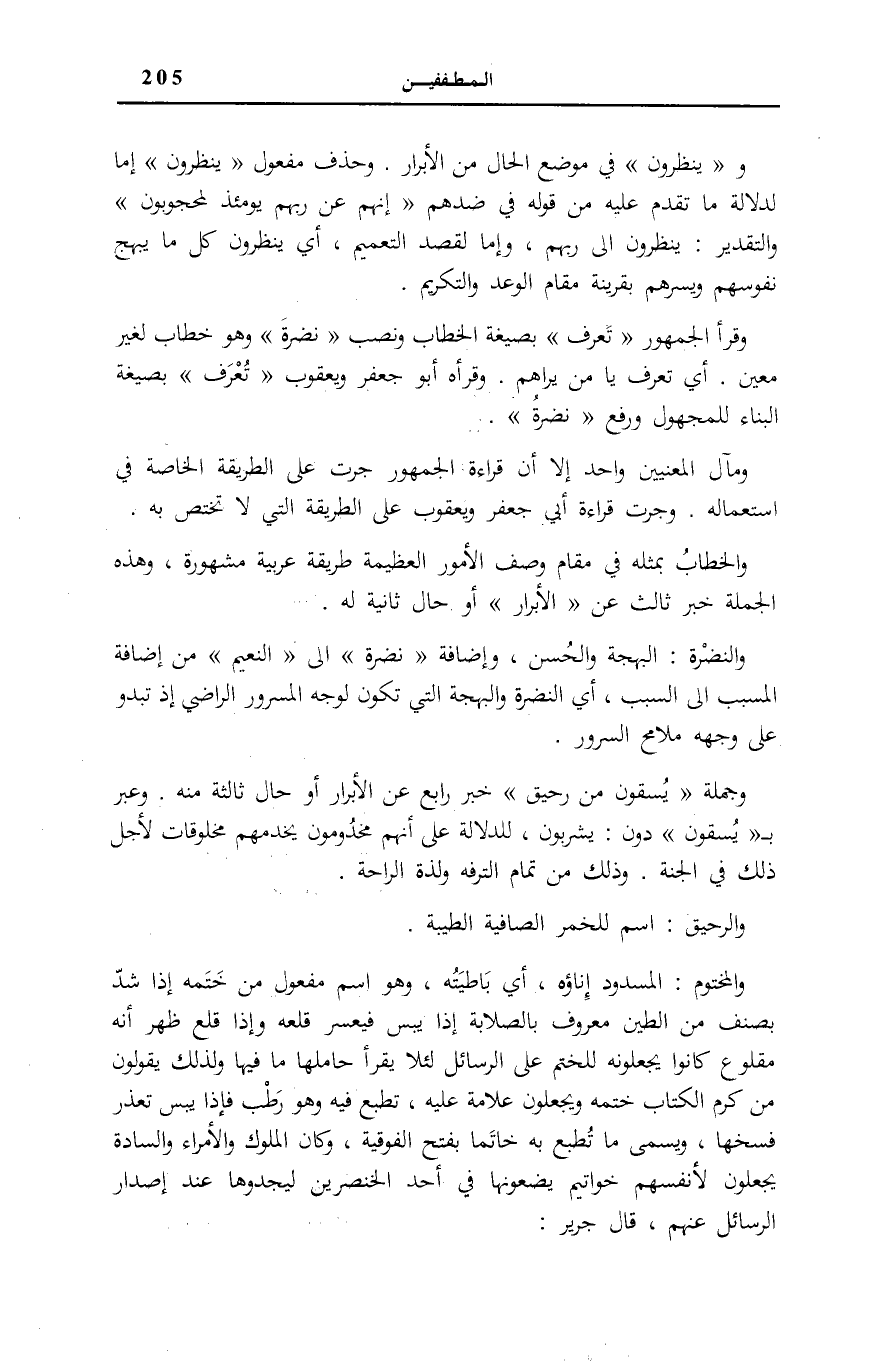 المطففين 205
و « ينظرون » في موضع الحال من الأبرار . وحذف مفعول « ينظرون » إما
لدلالة ما تقدم عليه من قوله في ضدهم « إنهم عن ربهم يومئذ لمحجوبون »
والتقدير : ينظرون الى ربهم ، وإما لقصد التعميم ، أي ينظرون كل ما يبهج
نفوسهم ويسرهم بقرينة مقام الوعد والتكريم .
وقرأ الجمهور « تَعرف » بصيغة الخطاب ونصب « نضرةَ » وهو خطاب لغير
معين . أي تعرف يا من يراهم . وقرأه أبو جعفر ويعقوب « تُعْرَف » بصيغة
البناء للمجهول ورفع « نضرةُ » .
ومآل المعنيين واحد إلا أن قراءة الجمهور جرت على الطريقة الخاصة في
استعماله . وجرت قراءة أبي جعفر ويعقوب على الطريقة التي لا تختص به .
والخطابُ بمثله في مقام وصف الأمور العظيمة طريقة عربية مشهورة ، وهذه
الجملة خبر ثالث عن « الأبرار » أو حال ثانية له .
والنضْرة : البهجة والحُسن ، وإضافة « نضرة » الى « النعيم » من إضافة
المسبب الى السبب ، أي النضرة والبهجة التي تكون لوجه المسرور الراضي إذ تبدو
على وجهه ملامح السرور .
وجملة « يُسقون من رحيق » خبر رابع عن الأبرار أو حال ثالثة منه . وعبر
بـ« يُسقون » دون : يشربون ، للدلالة على أنهم مخدُومون يخدمهم مخلوقات لأجل
ذلك في الجنة . وذلك من تمام الترفه ولذة الراحة .
والرحيق : اسم للخمر الصافية الطيبة .
والمختوم : المسدود إِناؤه ، أي بَاطيَتُه ، وهو اسم مفعول من خَتَمه إذا شدّ
بصنف من الطين معروف بالصلابة إذا يبس فيعسر قلعه وإذا قلع ظهر أنه
مقلوع كانوا يجعلونه للختم على الرسائل لئلا يقرأ حاملها ما فيها ولذلك يقولون
من كرم الكتاب ختمه ويجعلون علامة عليه ، تطبع فيه وهو رَطْب فإذا يبس تعذر
فسخها ، ويسمى ما تُطبع به خاتَما بفتح الفوقية ، وكان الملوك والأمراء والسادة
يجعلون لأنفسهم خواتيم يضعونها في أحد الخنصرين ليجدوها عند إصدار
الرسائل عنهم ، قال جرير :